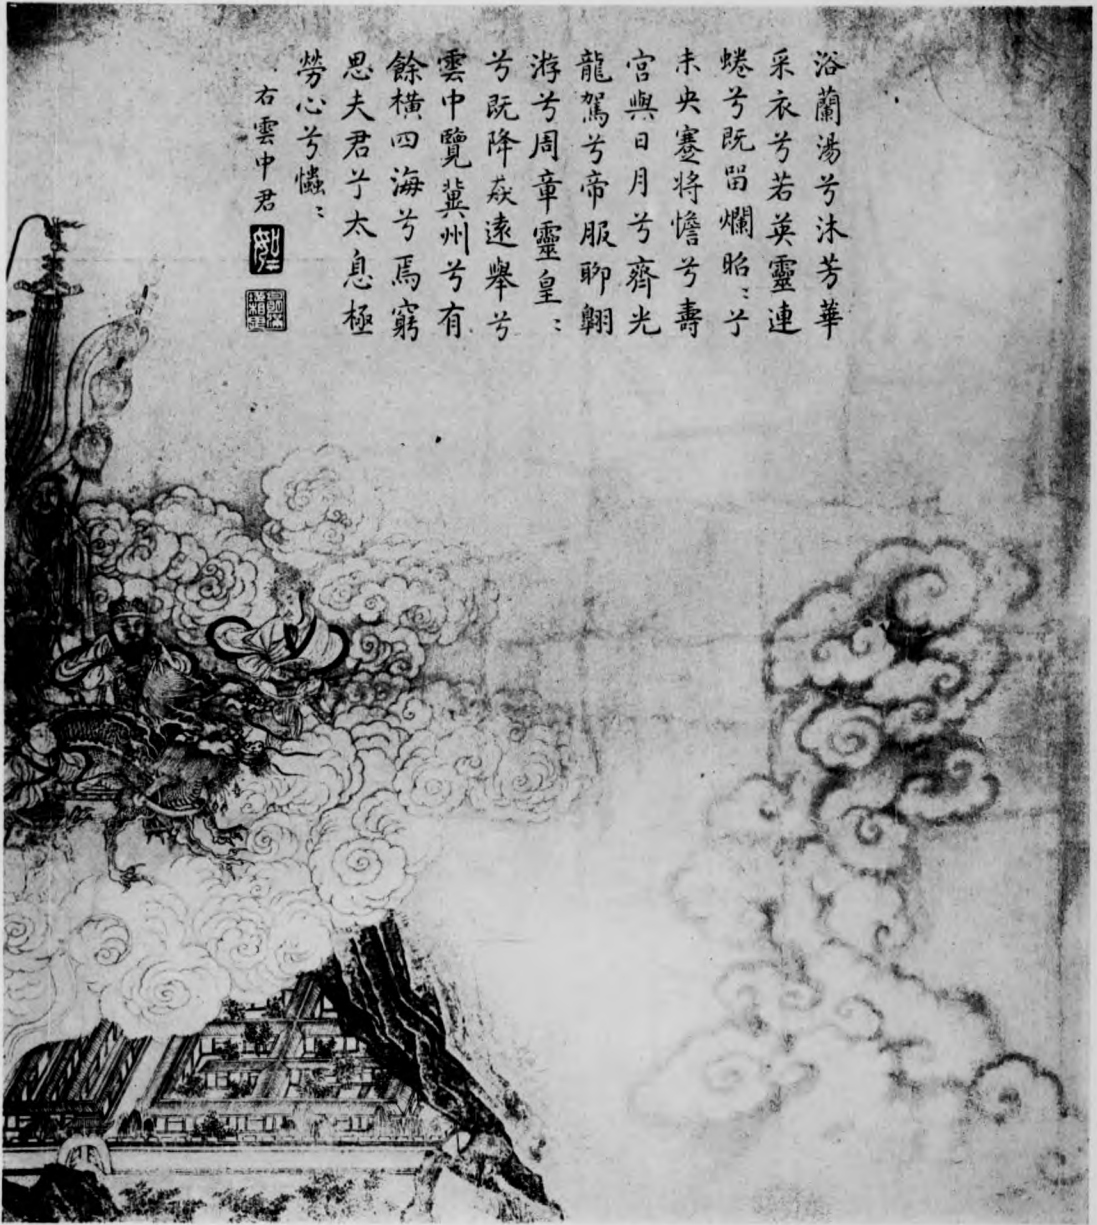 浴蘭湯兮沐芳華
采衣兮若英靈連
蜷兮既畱爛昭〻兮
未央蹇将憺兮壽
宮與日月兮齊光
龍駕兮帝服聊翱
游兮周章靈皇〻
兮既降猋遠舉兮
雲中覽冀州兮有
餘横四海兮焉窮
思夫君兮太息極
勞心兮忡〻
右雲中君